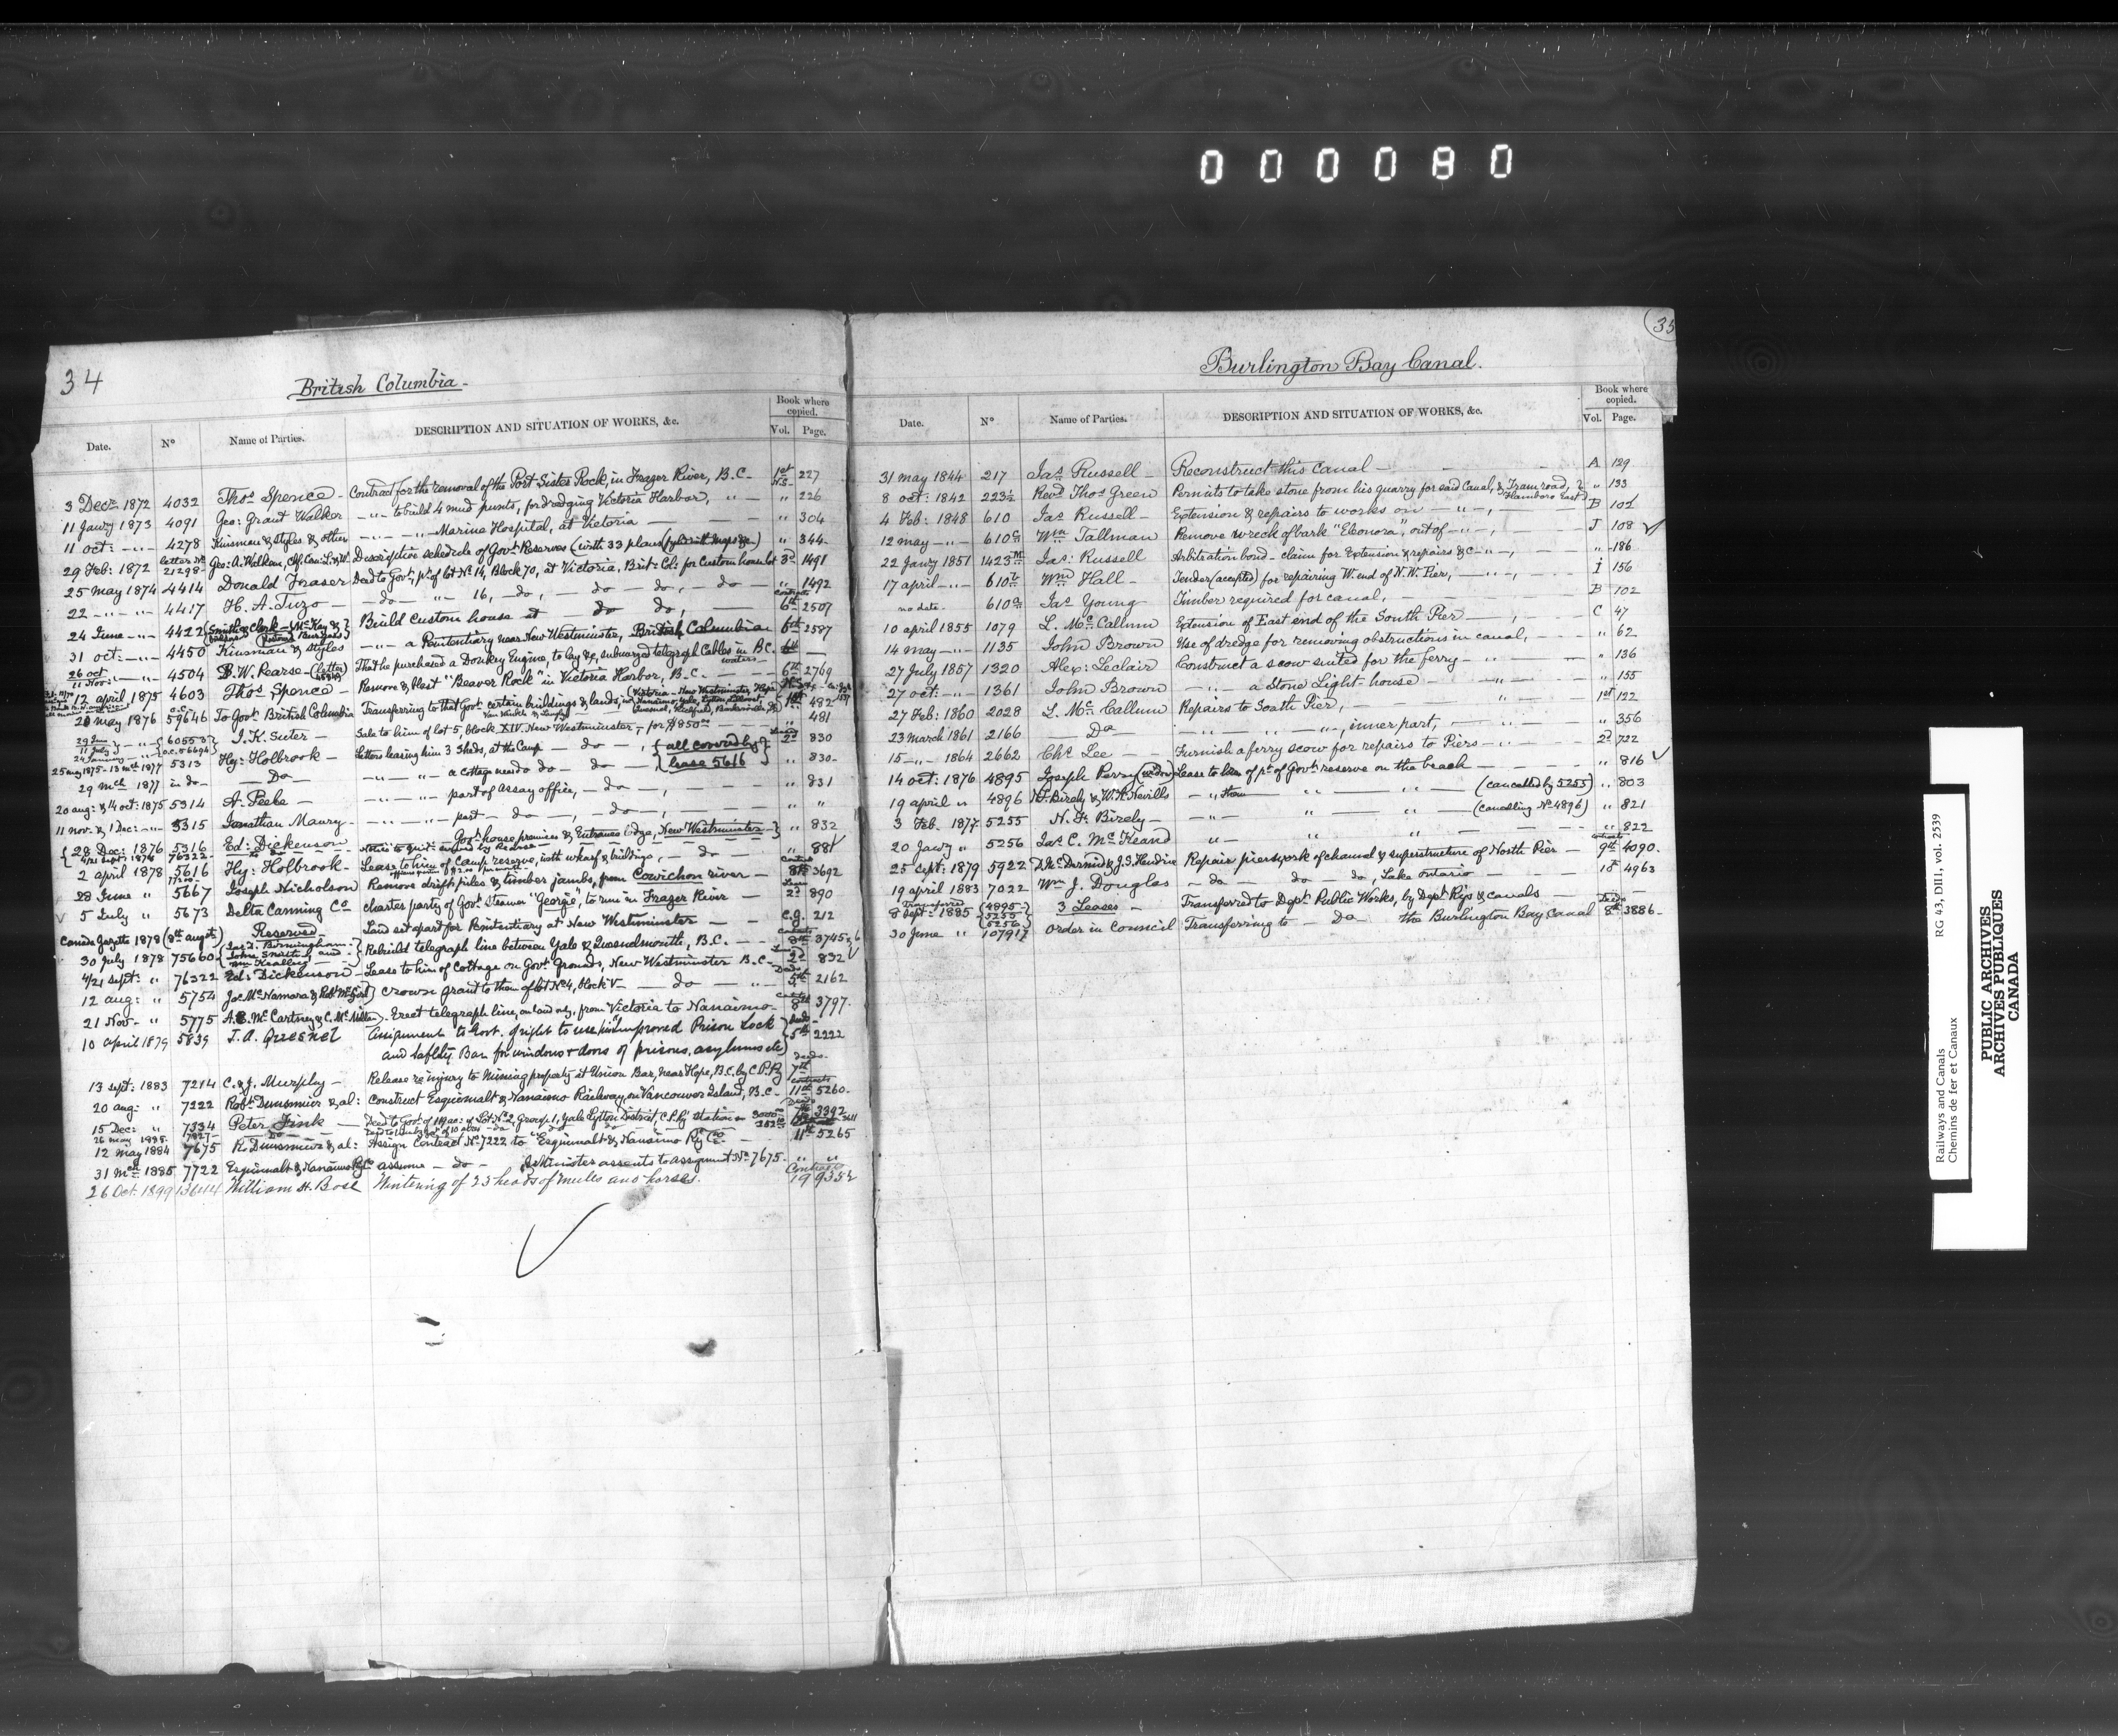 000080
34
British Columbia -
Book where copied.
Date. N° Name of Parties. DESCRIPTION AND SITUATION OF WORKS, &c. Vol. Page.
3 Decr 1872 4032 Thos Spence - Contract for the removal of the Port Sister Rock, in Frazer River, B.C. - 1st 227
11 Jany 1873 4091 Geo: Grant Walker - " - to build 4 mud punts, for dredging Victoria Harbor, " - " 226
11 oct: - " - 4278 Kinsman & Styles & other - " - " - Marine Hospital, at Victoria - " 304
29 Feb: 1872 letter No 21298 Geo: A. Walkem, Descriptive schedule of Govt Reserves (with 33 plans " 344
25 may 1874 4414 Donald Fraser Deed to Govt pt of lot No 14, Block 70, at Victoria, Brit: Col: for Custom house lot 3d 1491
22 - " - " - 4417 H. A. Tuzo - do - " - 16, - do, - do - do -, - do - " 1492
24 June - " - 4422 Smith & Clark - McKay & Build Custom house at do do, - 6th 2507
31 oct: - " - 4450 Kinsman & Styles - " - a Penitentiary near New Westminster, British Columbia 6th 2587
26 oct 11 Nov: - " - 4504 B. W. Pearse - (letter) That he purchased a Donkey Engine, to lay &c, submarged telegraph Cables in B.C. waters -
12 april 1875 4603 Thos Spence - Remove & blast "Beaver Rock" in Victoria Harbor, B.C. - 6th 2769
20 may 1876 59646 To Govt British Columbia Transferring to that Govt certain buildings & lands, 1st 482
I. K. Suter - Sale to him of lot 5, block XIV. New Westminster, for $850 " 481
Hy: Holbrook - Letters leasing him 3 Sheds, at the Camp - do - , {all covered by} 2d 830
25 may 1875 - 13 mch 1877 5313 {lease 5616}
29 mch 1877 in do - - Do - - " - " - a cottage near do do - do - " 830
20 aug: & 14 oct: 1875 5314 A. Peebe - - " - " - part of assay office, - do -, " 831
11 nov: & 1 Dec: - " - 5315 Jonathan Maury - - " - " - part - do -, - do -, " "
28 Dec: 1876 5316 Ed: Dickenson Govt house premises & Entrance lodge, New Westminster - " 832
2 april 1878 5616 Hy: Holbrook - Lease to him of Camp reserve, with wharf & buildings, - do - " 881
28 June " 5667 Joseph Nicholson Remove drift piles & timber jambs, from Cowichon river - 8th 3692
5 July " 5673 Delta Canning Co Charter party of Govt Steamer "Georgie", to run in Frazer River - 2d 890
Canada Gazette 1879 (8th augst) Reserved - Land set apart for Penitentiary at New Westminster C.G. 212
30 July 1878 75660 Rebuild telegraph line between Yale & Quesnelmouth, B.C. - 8th 3745
4/21 sept: " 76322 Ed: Dickenson - Lease to him of Cottage on Govt Grounds, New Westminster B.C. - 2d 832
12 aug: " 5754 Jos McNamara & Crown grant to them of lot No 4, block V - do - 5th 2162
21 Nov - " 5775 A. E. McCartney & C. McMillan. Erect telegraph line, on land only, from Victoria to Nanaimo - 8th 3797
10 april 1879 5839 T. A. Quesnel Assignment to Govt. of right to use his improved Prison Lock
and safety Bar for windows & doors of prisons, asylums etc) 5th 2222
13 sept: 1883 7214 C. & J. Murphy - Release re injury to Mining property at Union Bar, near Hope, B.C. by C P Ry 7th
20 aug: " 7222 Robt Dunsmuir & al: Construct Esquimalt & Nanaimo Railway, on Vancouver Island, B.C. - 11th 5260
15 Dec: " 7334 Peter Fink - Deed to Govt of 1 14/100 ac: of Lot No 2, Group 1, Yale Lytton District, C.P. Ry Station 7th 3392
12 may 1884 7675 R. Dunsmuir & al: Assign Contract No 7222 to "Esquimalt & Nanaimo Ry Co" - 11th 5265
31 mch 1885 7722 Esquimalt & Nanaimo Ry Co assume - do - & Minister assents to assignment No 7675 - " "
26 Oct. 1899 13614 William H. Bose Wintering of 23 heads of mules and horses. Contracts 19 9352
35
Burlington Bay Canal.
Book where copied.
Date. N° Name of Parties. DESCRIPTION AND SITUATION OF WORKS, &c. Vol. Page.
31 may 1844 217 Jas Russell - Reconstruct this Canal - A 129
8 oct: 1842 223½ Revd Thos Green Permits to take stone from his quarry for said Canal, & Tramroad, Flamboro East " 133
4 Feb: 1848 610 Jas Russell - Extension & repairs to works on - " -, B 101
12 may - " - 610a Wm Tallman Remove wreck of bark "Eleonora", out of - " -, J 108
22 Jany 1851 1423 Jas: Russell Arbitration bond - claim for Extension & repairs &c - " -, " 186
17 april - " - 610b Wm Hall - Tender (accepted) for repairing W. end of N.W. Pier, - " -, I 156
no date - 610a Jas Young Timber required for canal, - B 102
10 april 1855 1079 L. McCallum Extension of East end of the South Pier - C 47
14 may - " - 1135 John Brown Use of dredge for removing obstructions in canal, - " 62
27 July 1857 1320 Alex: Leclair Construct a scow suited for the ferry - " - " 136
27 oct: - " - 1361 John Brown - " - a Stone Light-house - " - " 155
27 Feb: 1860 2028 L. McCallum Repairs to South Pier, " 1st 122
23 march 1861 2166 - Do - " - " - " -, inner part, - " 356
15 - " - 1864 2662 Chs Lee - Furnish a ferry scow for repairs to Piers - " - 2d 722
14 oct: 1876 4895 Joseph Perry (widow) Lease to him of pt of Govt reserve on the beach - " 816
19 april " 4896 N. F. Birely & W. H. Nevills - " them " " (cancelled by 5255) " 803
3 Feb. 1877 5255 N. F. Birely - - " - " " (cancelling No 4896) " 821
20 Jany " 5256 Jas C. McKeand " " " " 822
25 sept: 1879 5922 D. McDermid & J. S. Hendrie Repair pierwork of channel & superstructure of North Pier - 9th 4090
19 april 1883 7022 Wm J. Douglas - do do - do, Lake Ontario - 10th 4963
8 sept: 1885 Transferred {4895 - 5255 5256} 3 Leases - Transferred to Dept Public Works, by Dept Rys & Canals
30 June " 107917 Order in Council Transferring to - Do - the Burlington Bay Canal 8th 3886 -
Railways and Canals RG 43, DIII, vol. 2539
Chemins de fer et Canaux
PUBLIC ARCHIVES
ARCHIVES PUBLIQUES
CANADA